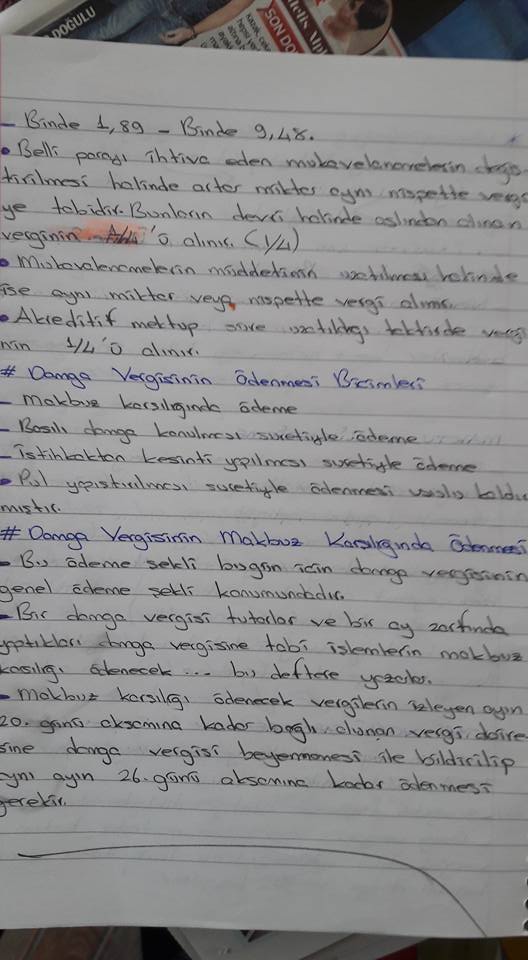 DOĞULU
SON DO
- Binde 1,89 - Binde 9,48.
• Belli parayı ihtiva eden mukavelenamelerin değiş-
tirilmesi halinde artar miktar aynı nispette vergi
ye tabidir. Bunların devri halinde aslından alınan
verginin 'ü alınır. (1/4)
• Mukavelenamelerin müddetinin uzatılması halinde
ise aynı miktar veya nispette vergi alınır.
• Akreditif mektup süre uzatıldığı taktirde vergi
nin 1/4'ü alınır.
# Damga Vergisinin Ödenmesi Bicimleri
- Makbuz karşılığında ödeme
- Basılı damga konulması suretiyle ödeme
- İstihkaktan kesinti yapılması suretiyle ödeme
• Pul yapıştırılması suretiyle ödenmesi usulü kaldı
mıştır.
# Damga Vergisinin Makbuz Karşılığında Ödenmesi
- Bu ödeme şekli bugün için damga vergisinin
genel ödeme şekli konumundadır.
- Bir damga vergisi tutarlar ve bir ay zarfında
yaptıkları damga vergisine tabi işlemlerin makbuz
kasılığı ödenecek ... bu deftere yazılır.
- Makbuz karşılığı ödenecek vergilerin izleyen ayın
20. günü akşamına kadar bağlı olunan vergi daire-
sine damga vergisi beyennamesi ile bildirilip
aynı ayın 26. günü akşamına kadar ödenmesi
gerekir.